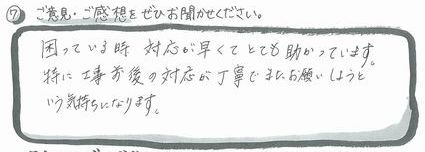 ⑦ ご意見・ご感想をぜひお聞かせください。
困っている時 対応が早くてとても助かっています。
特に工事前後の対応が丁寧でまたお願いしようと
いう気持ちになります。